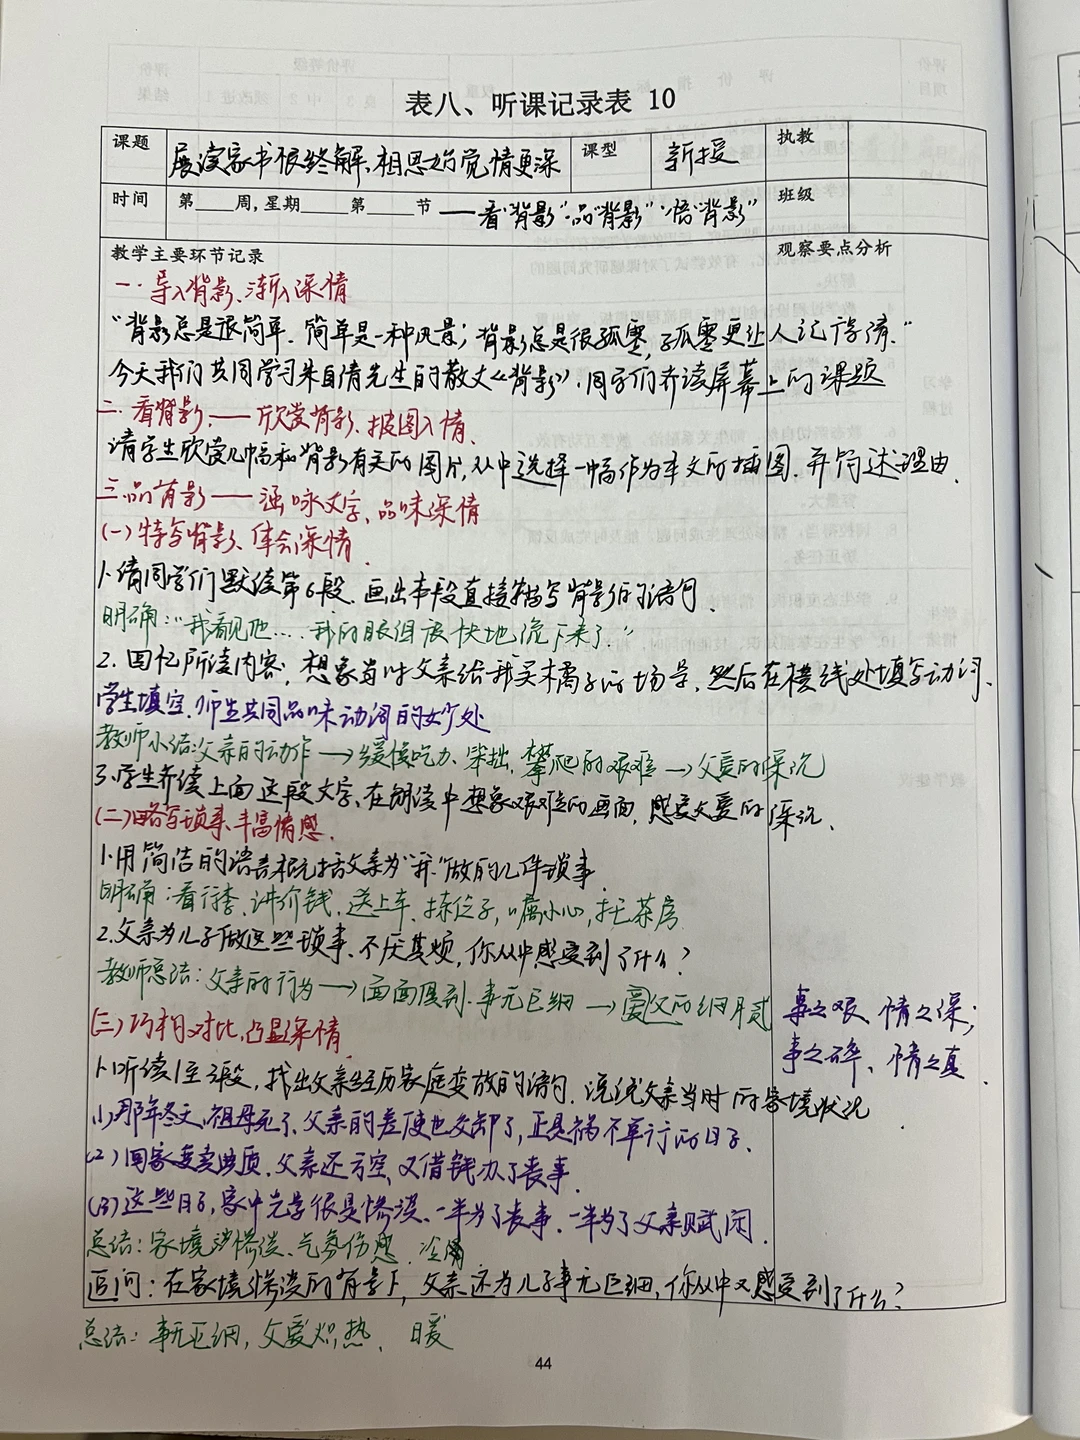 表八、听课记录表 10
课题 展读家书恨终解、相思始觉情更深 课型 新授 执教
时间 第____周,星期____第____节 ——看“背影”品“背影”悟“背影” 班级
教学主要环节记录 观察要点分析
一. 导入背影、渐入深情
“背影总是很简单. 简单是一种风景; 背影总是很孤零, 孤零更让人记得清.”
今天我们共同学习朱自清先生的散文《背影》. 同学们齐读屏幕上的课题
二. 看背影. —— 欣赏背影. 披图入情.
请学生欣赏几幅和背影有关的图片, 从中选择一幅作为本文的插图. 并简述理由.
三.品背影 —— 涵咏文字、品味深情
(一)特写背影、体会深情.
1.请同学们默读第6段. 画出本段直接描写背影的语句.
明确: “我看见他....我的眼泪很快地流下来了”
2. 回忆所读内容; 想象当时父亲给我买橘子的场景. 然后在横线处填写动词.
学生填空. 师生共同品味动词的妙处
教师小结:父亲的动作 → 缓慢吃力. 笨拙. 攀爬的艰难 → 父爱的深沉
3.学生齐读上面这段文字、在朗读中想象艰难的画面, 感受父爱的深沉.
(二)略写琐事、丰富情感.
1.用简洁的语言概括父亲为“我”做的几件琐事.
明确: 看行李、讲价钱、送上车. 拣位子, 嘱小心, 托茶房
2.父亲为儿子做这些琐事、不厌其烦, 你从中感受到了什么?
教师总结: 父亲的行为 → 面面俱到. 事无巨细 → 爱父的细腻
事之艰、情之深;
事之碎、情之真.
(三)巧相对比, 凸显深情.
1.听读1至3段, 找出父亲经历家庭变故的语句. 说说父亲当时的家境状况.
(1)那年冬天, 祖母死了、父亲的差使也交卸了, 正是祸不单行的日子.
(2)回家变卖典质. 父亲还亏空, 又借钱办了丧事.
(3)这些日子, 家中光景很是惨淡、一半为了丧事. 一半为了父亲赋闲.
总结: 家境惨淡、气氛伤感.
追问: 在家境惨淡的背景下, 父亲还为儿子事无巨细, 你从中又感受到了什么?
总结: 事无巨细, 父爱炽热. 暖
44